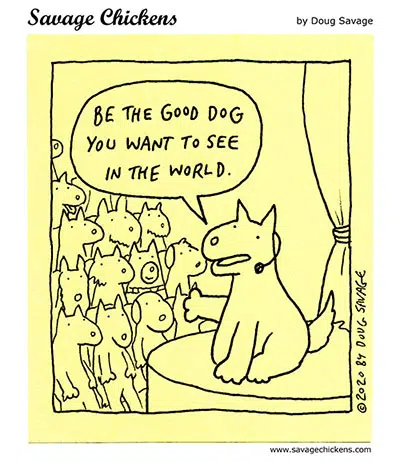 Savage Chickens
by Doug Savage
BE THE GOOD DOG
YOU WANT TO SEE
IN THE WORLD.
©2020 BY DOUG SAVAGE
www.savagechickens.com